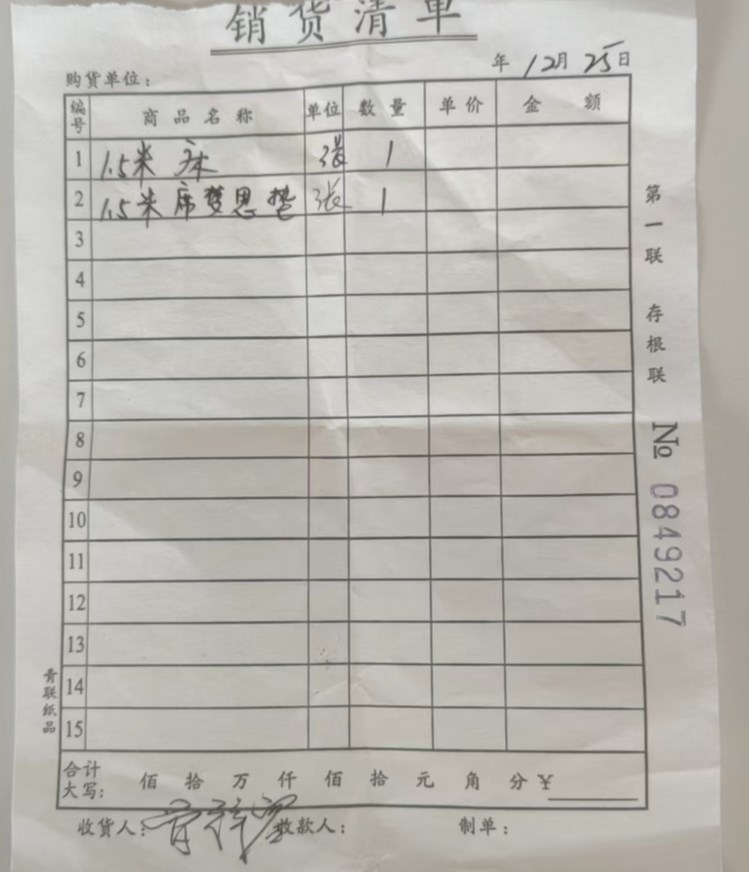 销货清单
年 12月 25日
购货单位：
编号 商品名称 单位 数量 单价 金额
1 1.5米 床 张 1
2 1.5米 席梦思垫 张 1
3
4
5
6
7
8
9
10
11
12
13
14
15
合计大写： 佰 拾 万 仟 佰 拾 元 角 分 ¥
收货人： 收款人： 制单：
第一联 存根联
№ 0849217
青联纸品